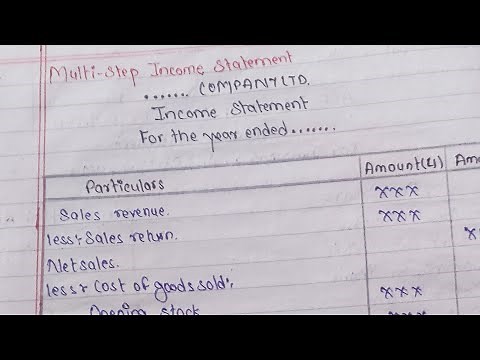 Multi-Step Income Statement
....... COMPANY LTD.
Income Statement
For the year ended.......
Particulars Amount(₹) Am
Sales revenue. xxx
less:- Sales return. xxx
Net sales. x
less:- Cost of goods sold:
Opening stock xxx